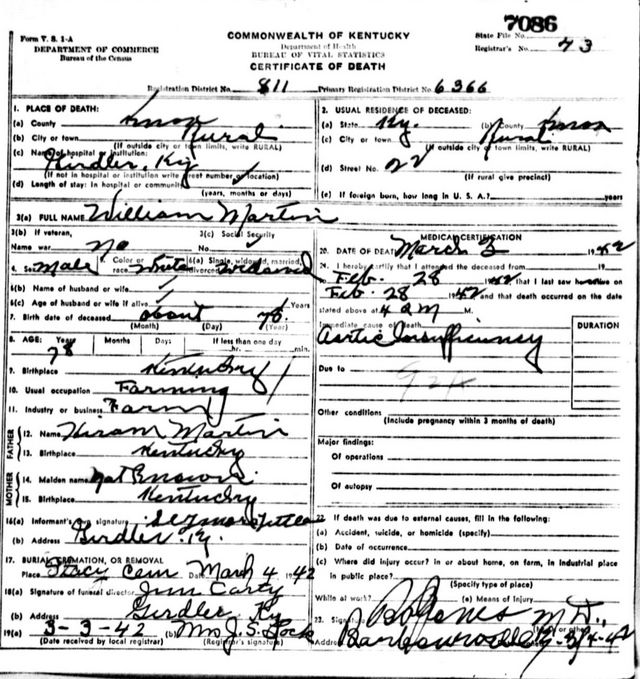 7086
Form V. S. 1-A
DEPARTMENT OF COMMERCE
Bureau of the Census
COMMONWEALTH OF KENTUCKY
Department of Health
BUREAU OF VITAL STATISTICS
CERTIFICATE OF DEATH
State File No.
Registrar's No. 73
Registration District No. 811 Primary Registration District No. 6366
1. PLACE OF DEATH:
(a) County Knox
(b) City or town Rural
(If outside city or town limits, write RURAL)
(c) Name of hospital or institution:
Girdler, Ky
(If not in hospital or institution write street number or location)
(d) Length of stay: In hospital or community
(years, months or days)
2. USUAL RESIDENCE OF DECEASED:
(a) State Ky. (b) County Knox
(c) City or town Rural
(If outside city or town limits, write RURAL)
(d) Street No. 22
(If rural give precinct)
(e) If foreign born, how long in U. S. A.?
3(a) FULL NAME William Martin
3(b) If veteran, 3(c) Social Security
Name war No No.
4. Sex Male 5. Color or race White 6(a) Single, widowed, married, divorced Widowed
6(b) Name of husband or wife
6(c) Age of husband or wife if alive Years
7. Birth date of deceased about 78
(Month) (Day) (Year)
8. AGE: Years Months Days If less than one day
78 hr. min.
9. Birthplace Kentucky
10. Usual occupation Farming
11. Industry or business Farm
FATHER
12. Name Hiram Martin
13. Birthplace Kentucky
MOTHER
14. Maiden name Not Known
15. Birthplace Kentucky
16(a) Informant's own signature
(b) Address Girdler, Ky.
17. BURIAL, CREMATION, OR REMOVAL
Place Cem Date March 4 1942
18(a) Signature of funeral director Jim Carty
(b) Address Girdler Ky
19(a) 3-3-42 (b) Mrs J. S. Lock
(Date received by local registrar) (Registrar's signature)
MEDICAL CERTIFICATION
20. DATE OF DEATH March 3 1942
21. I hereby certify that I attended the deceased from 19
to Feb. 28 1942 that I last saw alive on
Feb. 28 1942 and that death occurred on the date
stated above at 4 a M M.
Immediate cause of death
Aortic Insufficiency
DURATION
Due to 92x
Other conditions
(Include pregnancy within 3 months of death)
Major findings:
Of operations
Of autopsy
22. If death was due to external causes, fill in the following:
(a) Accident, suicide, or homicide (specify)
(b) Date of occurrence
(c) Where did injury occur? in or about home, on farm, in industrial place
in public place?
(Specify type of place)
While at work? (e) Means of injury
23. Signature Jones M D.,
Address Barbourville Ky 3/4-42